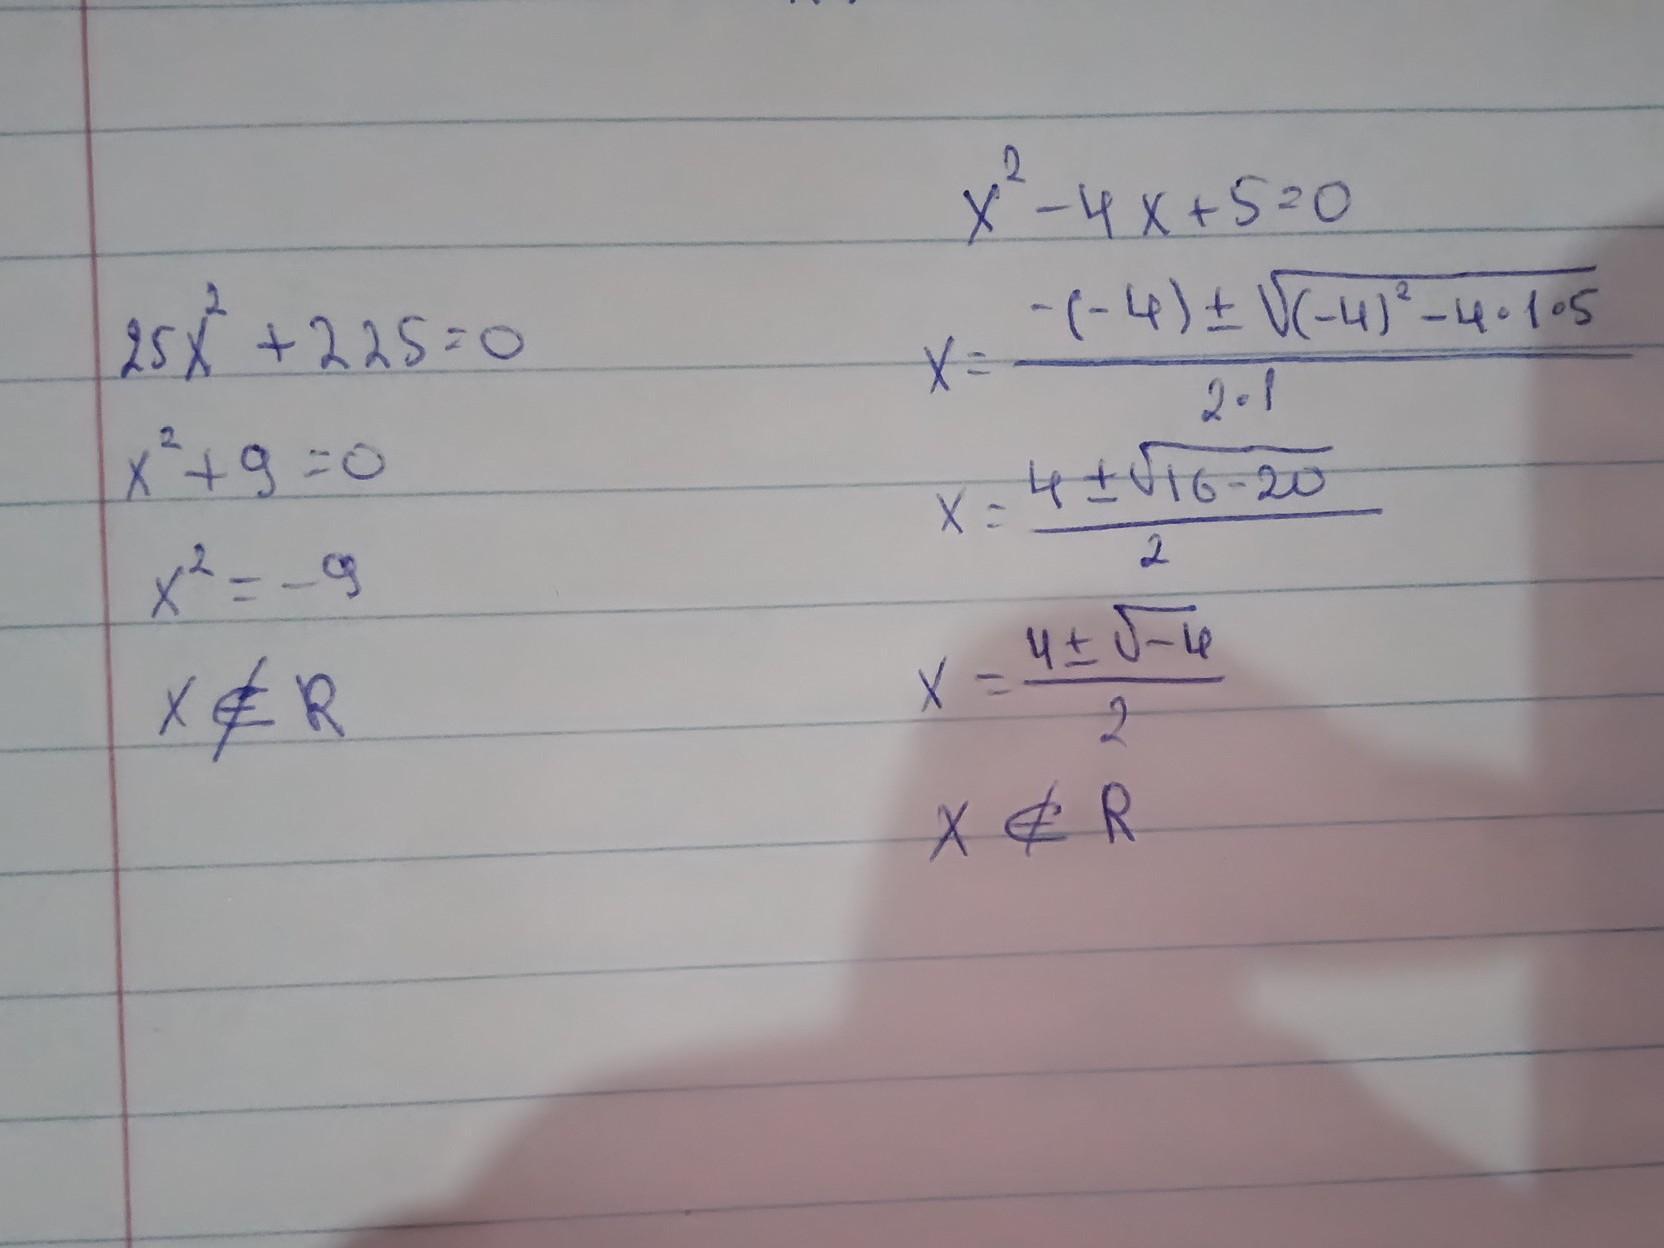 25x² + 225 = 0
x² + 9 = 0
x² = -9
x ∉ R
x² - 4x + 5 = 0
x = (-(-4) ± √((-4)² - 4·1·5)) / (2·1)
x = (4 ± √(16 - 20)) / 2
x = (4 ± √(-4)) / 2
x ∉ R